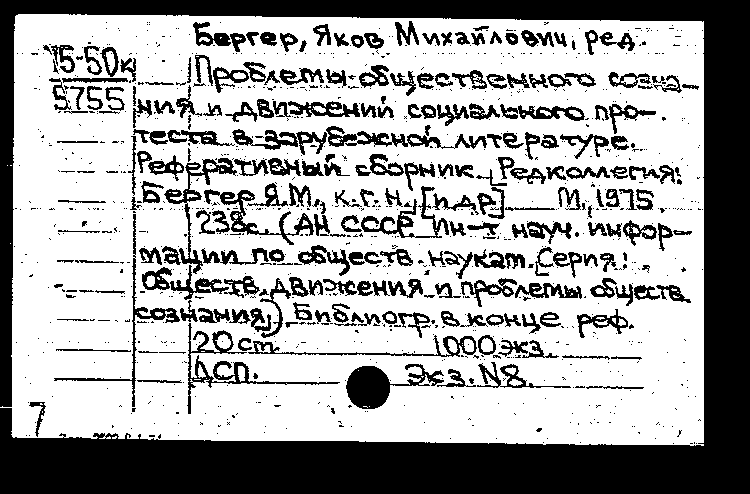 Бергер, Яков Михайлович, ред.
15-50к
5755
Проблемы общественного созна-
ния и движений социального про-
теста в зарубежной литературе.
Реферативный сборник. [Редколлегия:
Бергер Я.М., к.г.н., [и др.] М., 1975.
238с. (АН СССР. Ин-т науч. инфор-
мации по обществ. наукам. [Серия:
Обществ. движения и проблемы обществ.
сознания]). Библиогр. в конце реф.
20 ст. 1000 экз.
ДСП. Экз. N8.
7